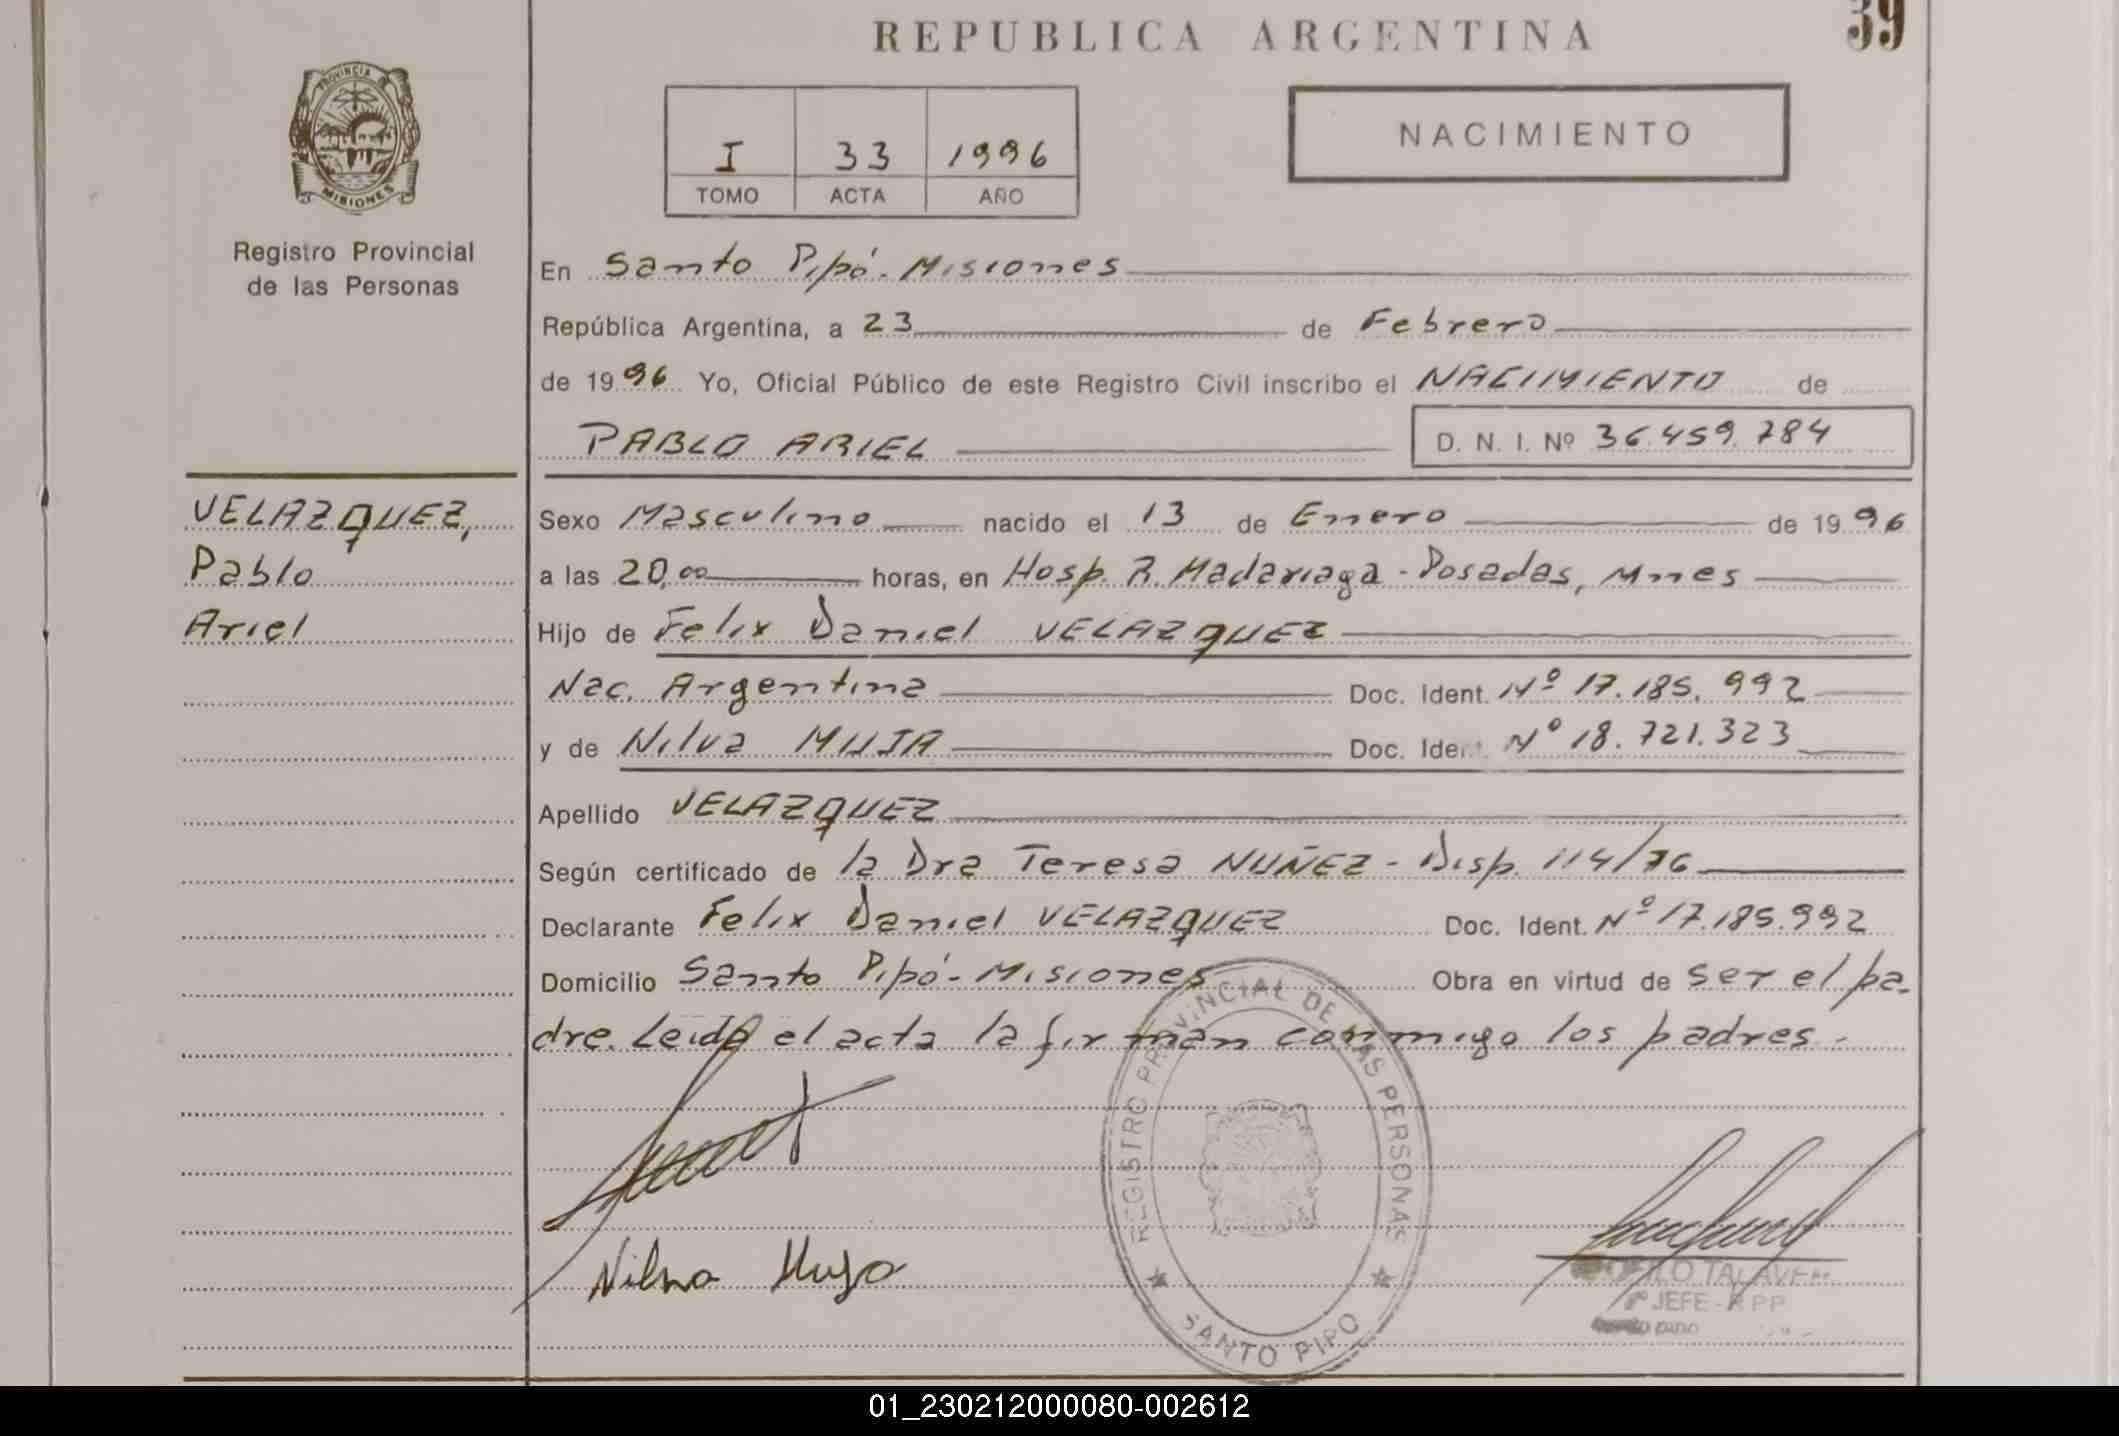 REPUBLICA ARGENTINA
39
PROVINCIA
MISIONES
Registro Provincial
de las Personas
I 33 1996
TOMO ACTA AÑO
NACIMIENTO
En Santo Pipó - Misiones
República Argentina, a 23 de Febrero
de 1996 Yo, Oficial Público de este Registro Civil inscribo el NACIMIENTO de
PABLO ARIEL
D. N. I. Nº 36.459.784
VELAZQUEZ,
Pablo
Ariel
Sexo Masculino nacido el 13 de Enero de 1996
a las 20,00 horas, en Hosp. R. Madariaga - Posadas, Mnes
Hijo de Felix Daniel VELAZQUEZ
Nac. Argentina Doc. Ident. Nº 17.185.992
y de Nilva MUJA Doc. Ident. Nº 18.721.323
Apellido VELAZQUEZ
Según certificado de la Dra Teresa NUÑEZ - Disp. 114/76
Declarante Felix Daniel VELAZQUEZ Doc. Ident. Nº 17.185.992
Domicilio Santo Pipó - Misiones Obra en virtud de ser el pa-
dre. Leida el acta la firman conmigo los padres.-
REGISTRO PROVINCIAL DE LAS PERSONAS
SANTO PIPO
Nilva Muja
JEFE - RPP
01_230212000080-002612